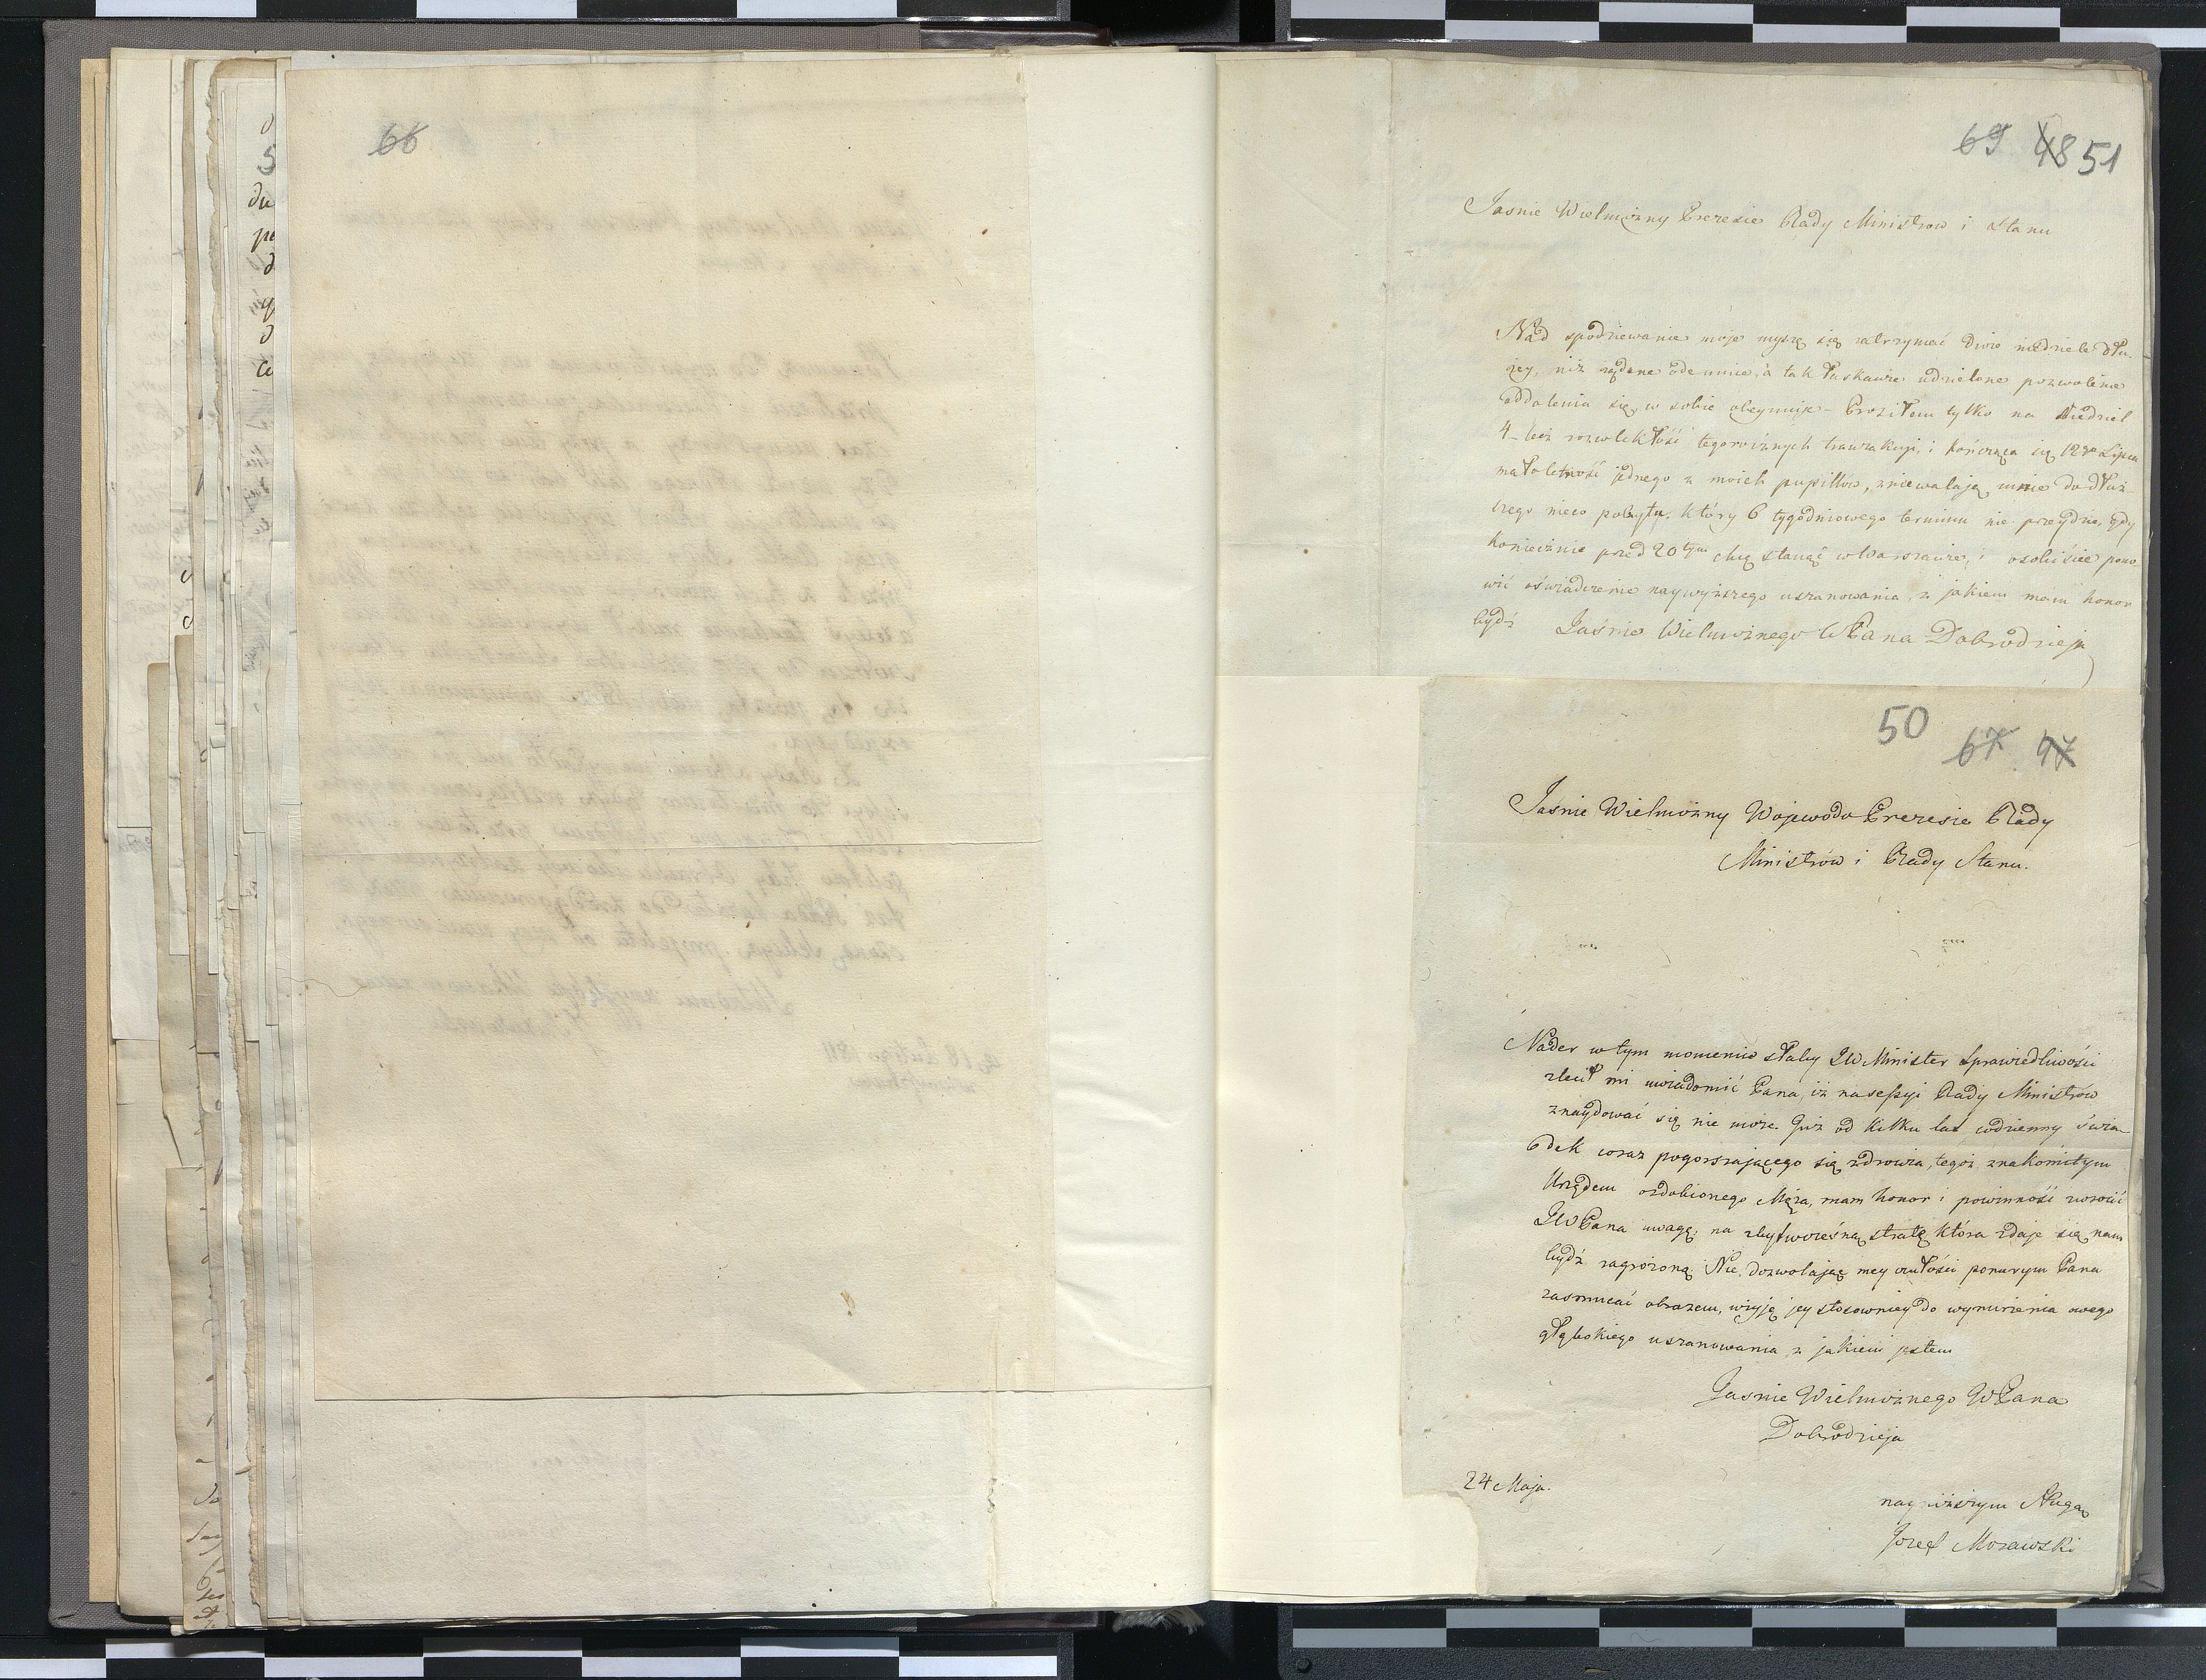 66
69 48 51
Jasnie Wielmożny Prezesie Rady Ministrow i Stanu
Nad spodziewanie moje muszę się zatrzymać dwie niedziele dłu-
żey, niż żądane odemnie, a tak łaskawie udzielone pozwolenie
oddalenia się, w sobie obeymuje - Prosiłem tylko na Niedziel
4 - lecz rozwlekłość tegorocznych tranzakcyi, i kończąca się 12go Lipca
małoletność jednego z moich pupillów, zniewalają mnie do dłuż-
szego nieco pobytu, który 6 tygodniowego terminu nie przeydzie, gdy
koniecznie przed 20tym chcę stanąć w Warszawie, i osobiście pono-
wić oświadczenie naywyższego uszanowania, z jakiem mam honor
bydź Jaśnie Wielmożnego WPana Dobrodzieja
50 67 47
Jaśnie Wielmożny Wojewodo Prezesie Rady
Ministrów i Rady Stanu.
Nader w tym momencie słaby JW Minister Sprawiedliwości
zlecił mi uwiadomić Pana, iż na sessyi Rady Ministrów
znaydować się nie może. Już od kilku lat codzienny świa-
dek coraz pogorszającego się zdrowia, tegoż znakomitym
Urzędem ozdobionego Męża, mam honor i powinność zwrócić
JWPana uwagę, na zbytwczesną stratę która zdaje się nam
bydź zagrożoną. Nie dozwalając mey czułości ponurym Pana
zasmucać obrazem, użyję jey stosowniey do wynurzenia owego
głębokiego uszanowania z jakiem jestem
Jasnie Wielmożnego WPana
Dobrodzieja
24 Maja.
nayniższym Sługą
Jozef Morawski